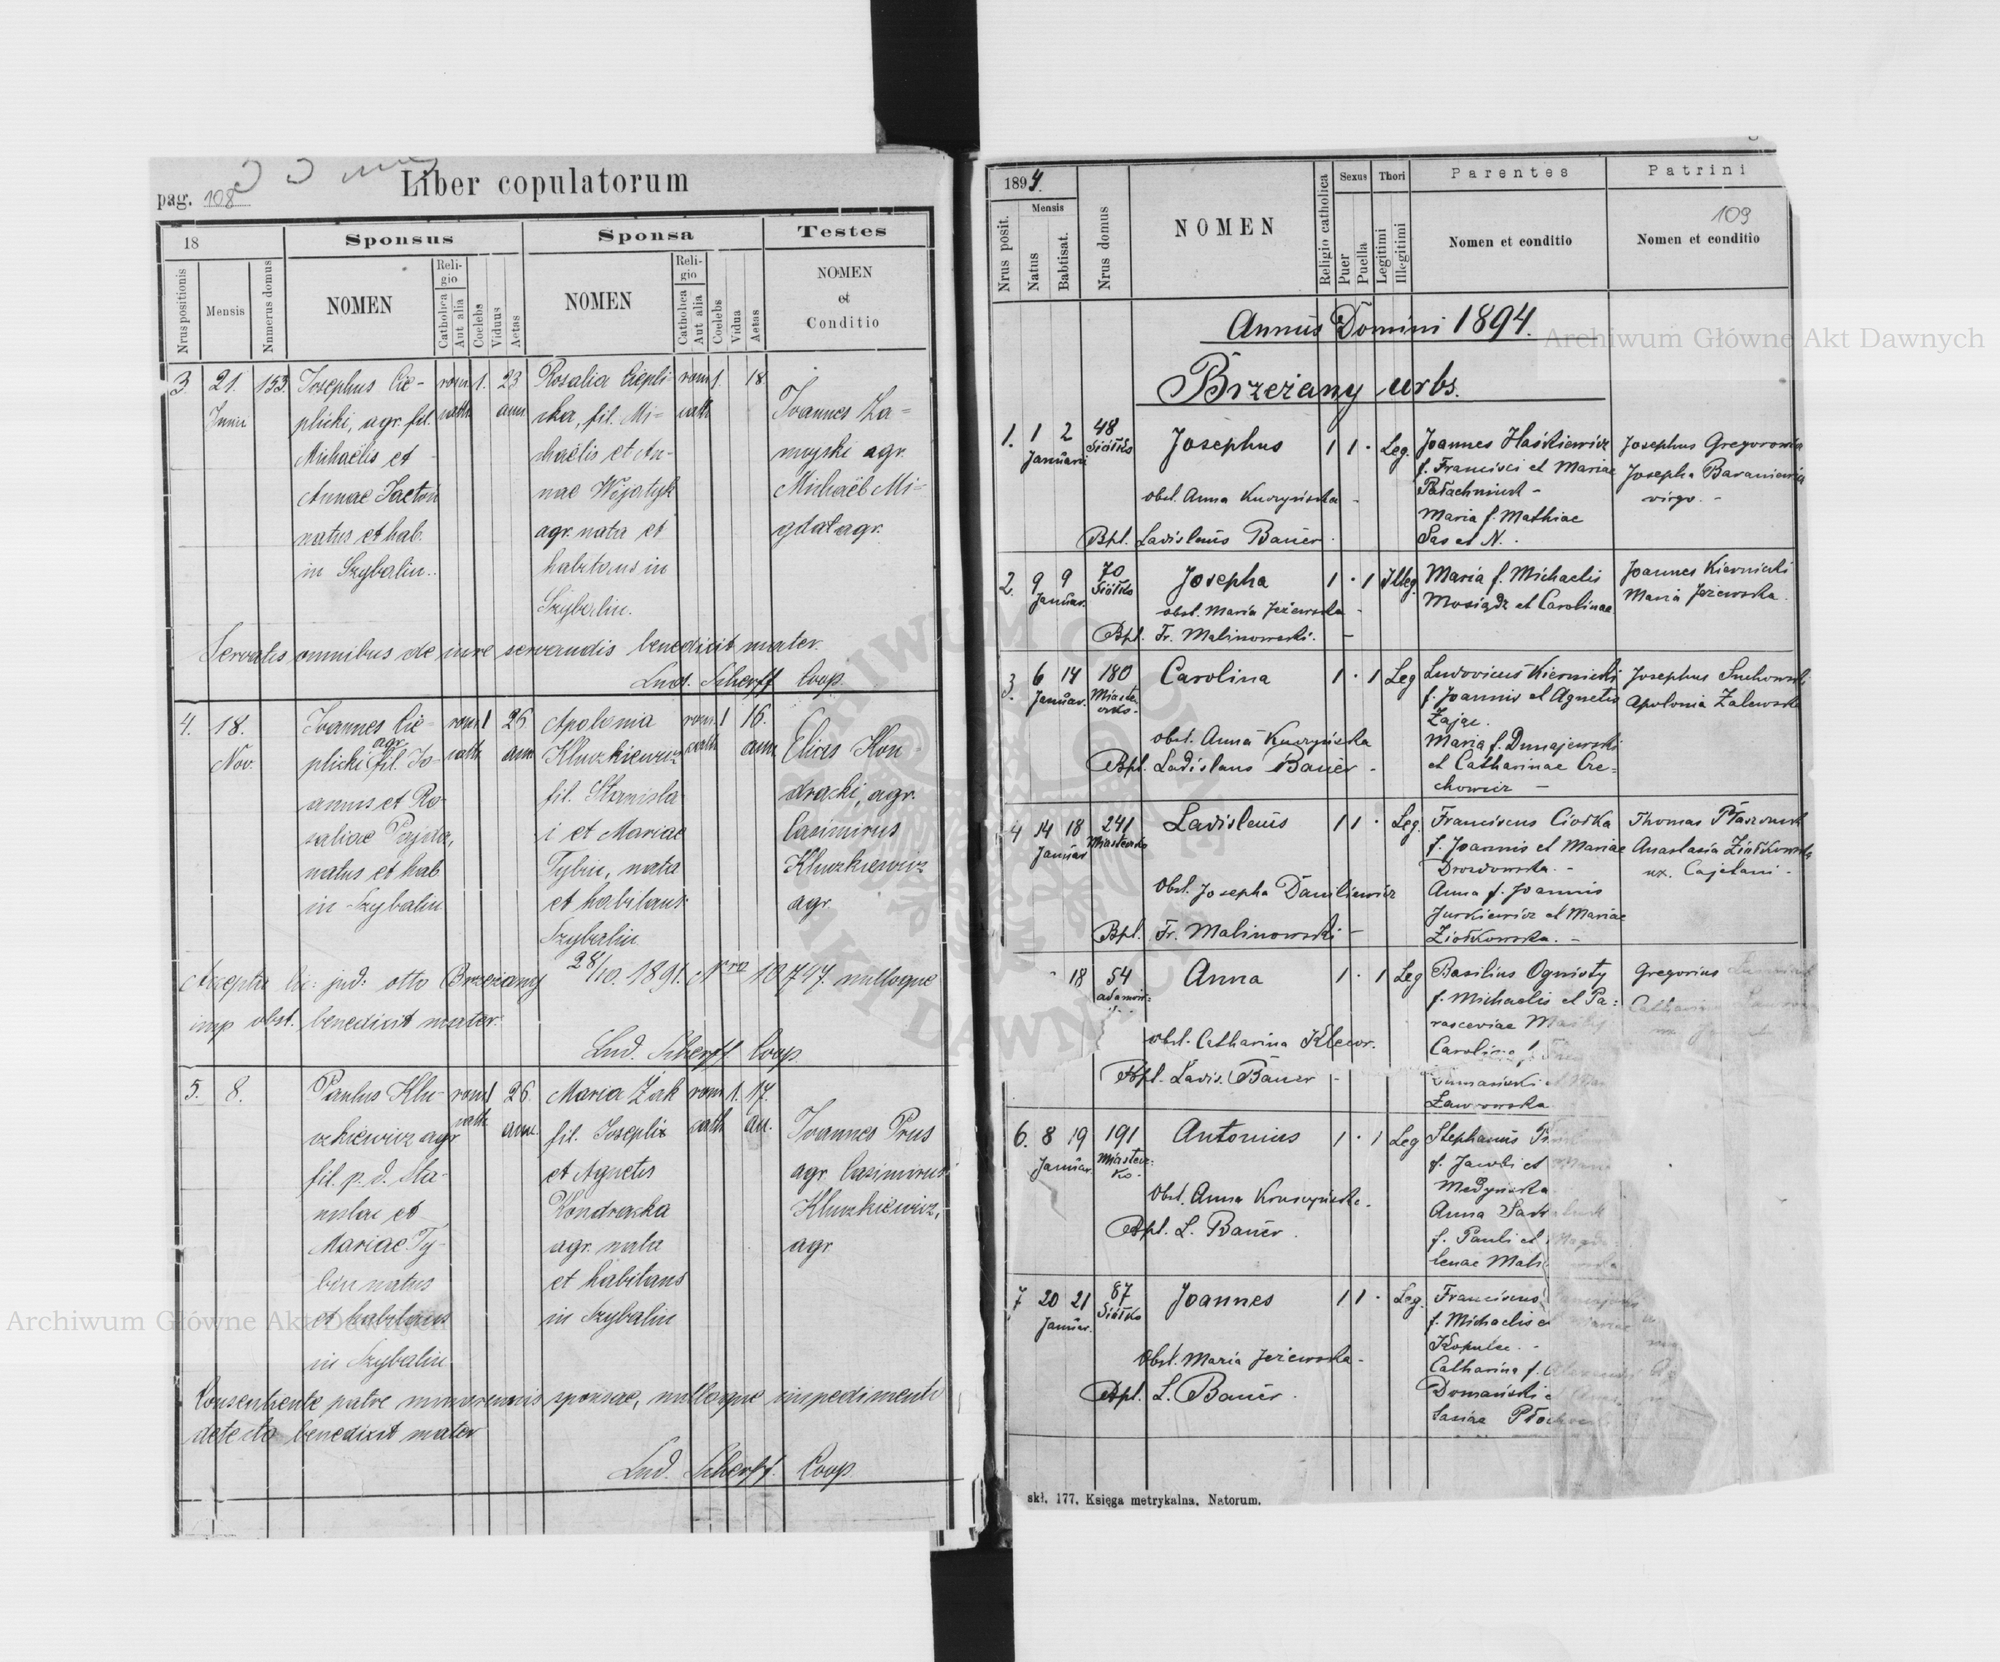 pag. 108
Liber copulatorum
18
Sponsus
Sponsa
Testes
Nrus positionis
Mensis
Numerus domus
NOMEN
Reli-
gio
Catholica
Aut alia
Coelebs
Viduus
Aetas
NOMEN
Reli-
gio
Catholica
Aut alia
Coelebs
Vidua
Aetas
NOMEN
et
Conditio
3 21. 153 Josephus Cie- rom. 1. 23 Rosalia Ciepli- rom. 1. 18.
Junii plicki, agr. fil. cath. ann. cka, fil. Mi= cath. Joannes Za=
Michaëlis et chaëlis et An- mojski agr.
Annae nae Wojatyk Michaël Mi=
natus et hab. agr. nata et gdal agr.
in Szybalin. habitans in
Szybalin.
Servatis omnibus de iure servandis benedixit mater.
Lud. Scherff Coop.
4. 18. Joannes Cie rom. 1 26 Apolonia rom. 1 16.
Nov. plicki agr. fil. Jo- cath. ann. Kluczkiewicz cath. ann. Elias Kon-
annis et Ro- fil. Stanisla dracki, agr.
saliae Pajda, i et Mariae Casimirus
natus et hab Tybin, nata Kluczkiewicz
in Szybalin et habitans agr.
Szybalin
28/10. 1891. Nro 10747. nulloque
imp obst. benedixit mater.
Lud. Scherff Coop
5. 8. Paulus Klu- rom. 1 26. Maria Żak rom. 1. 17.
czkiewicz agr cath. ann. fil. Josephi cath. an. Joannes Prus
fil. p. d. Sta- et Agnetis agr. Casimirus
nislai et Kondracka Kluczkiewicz,
Mariae Ty- agr. nata agr
bin natus et habitans
et habitans in Szybalin
in Szybalin
Consentiente patre minorennis sponsae, nulloque impedimento
detecto benedixit mater
Lud. Scherff. Coop.
1894.
Nrus posit.
Mensis
Natus
Babtisat.
Nrus domus
NOMEN
Religio catholica
Sexus
Puer
Puella
Thori
Legitimi
Illegitimi
Parentes
Nomen et conditio
Patrini
109
Nomen et conditio
Annus Domini 1894.
Brzeżany urbs.
1. 1 2 48 Josephus 1 1 · Leg. Joannes Haśkiewicz Josephus Gregorowicz
Januarii Siółko f. Francisci et Mariae Josepha Baraniewicz
obst. Anna Kuczyńska - virgo. -
Maria f. Mathiae
Bpt. Ladislaus Bauer. Sas et N.
2. 9 9 70 Josepha 1 · 1 Illeg. Maria f. Michaelis Joannes Kiernicki
Januar. Siółko Mosiądz et Carolinae Maria Jeżewska.
obst. Maria Jeżewska -
Bpt. Fr. Malinowski. -
3. 6 14 180 Carolina 1 · 1 Leg Ludovicus Kiernicki Josephus Suchowski
Januar. Miaste-
czko. f. Joannis et Agnetis Apolonia Zalewska
Zając.
obst. Anna Kuczyńska Maria f. Dunajewski
Bpt. Ladislaus Bauer - et Catharinae Cze=
chowicz -
4 14 18 241 Ladislaus 1 1 · Leg. Franciscus Ciostka
Januar Miasteczko f. Joannis et Mariae Anastasia Ziółkowska
Drozdowska. - ux. Cajetani -
Obst. Josepha Daniliewicz Anna f. Joannis
Jurkiewicz et Mariae
Bpt. Fr. Malinowski - Ziółkowska. -
18 54 Anna 1 · 1 Leg Basilius Ognisty Gregorius
f. Michaelis et Pa=
rasceviae
obst. Catharina Klewr.
Bpt. Ladis. Bauer -
Ławrowska
6. 8 19 191 Antonius 1 · 1 Leg Stephanus
Januar Miastecz-
ko. f. Jacobi et
Medyńska
Obst. Anna Kruczyńska. Anna
Bpt. L. Bauer. f. Pauli et Magda
lenae
7 20 21 87 Joannes 1 1 · Leg. Franciscus
Januar. Siółko f. Michaelis et
Kopulec. -
Obst. Maria Jeżewska - Catharina f.
Bpt. L. Bauer. Domański
skł. 177, Księga metrykalna, Natorum.
Archiwum Główne Akt Dawnych
Archiwum Główne Akt Dawnych
ARCHIWUM GŁÓWNE AKT DAWNYCH